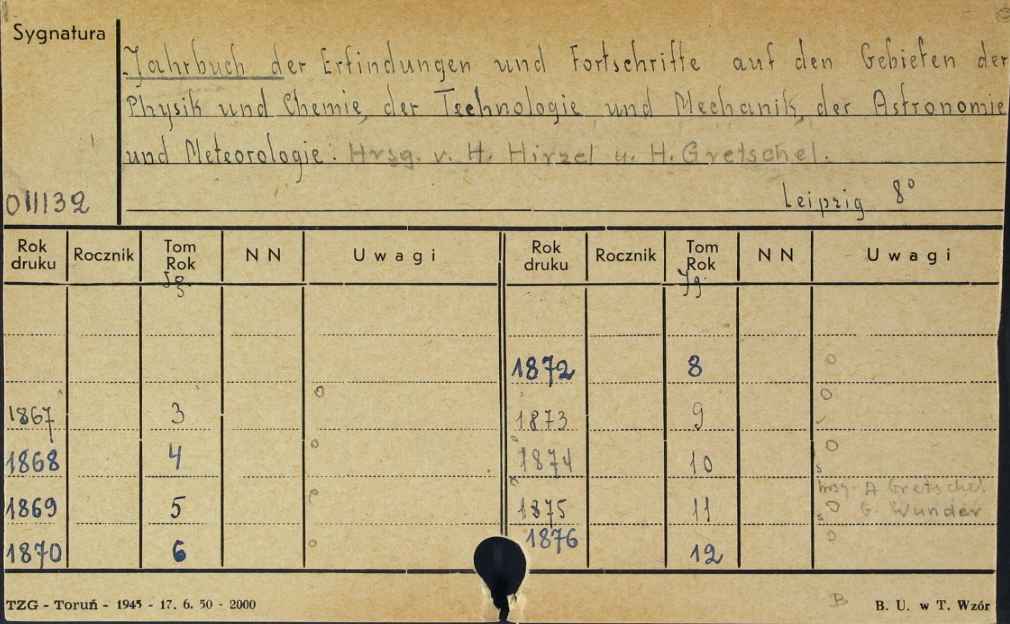 Sygnatura
Jahrbuch der Erfindungen und Fortschritte auf den Gebieten der
Physik und Chemie, der Technologie und Mechanik, der Astronomie
und Meteorologie. Hrsg. v. H. Hirzel u. H. Gretschel.
011132
Leipzig 8°
Rok druku Rocznik Tom Rok NN Uwagi Rok druku Rocznik Tom Rok NN Uwagi
Jg Jg
1872 8 o
1867 3 o 1873 9 o
1868 4 o 1874 10 o
hrsg. A Gretschel
1869 5 1875 11 o G. Wunder
1870 6 o 1876 12 o
TZG - Toruń - 1945 - 17. 6. 50 - 2000 B B. U. w T. Wzór